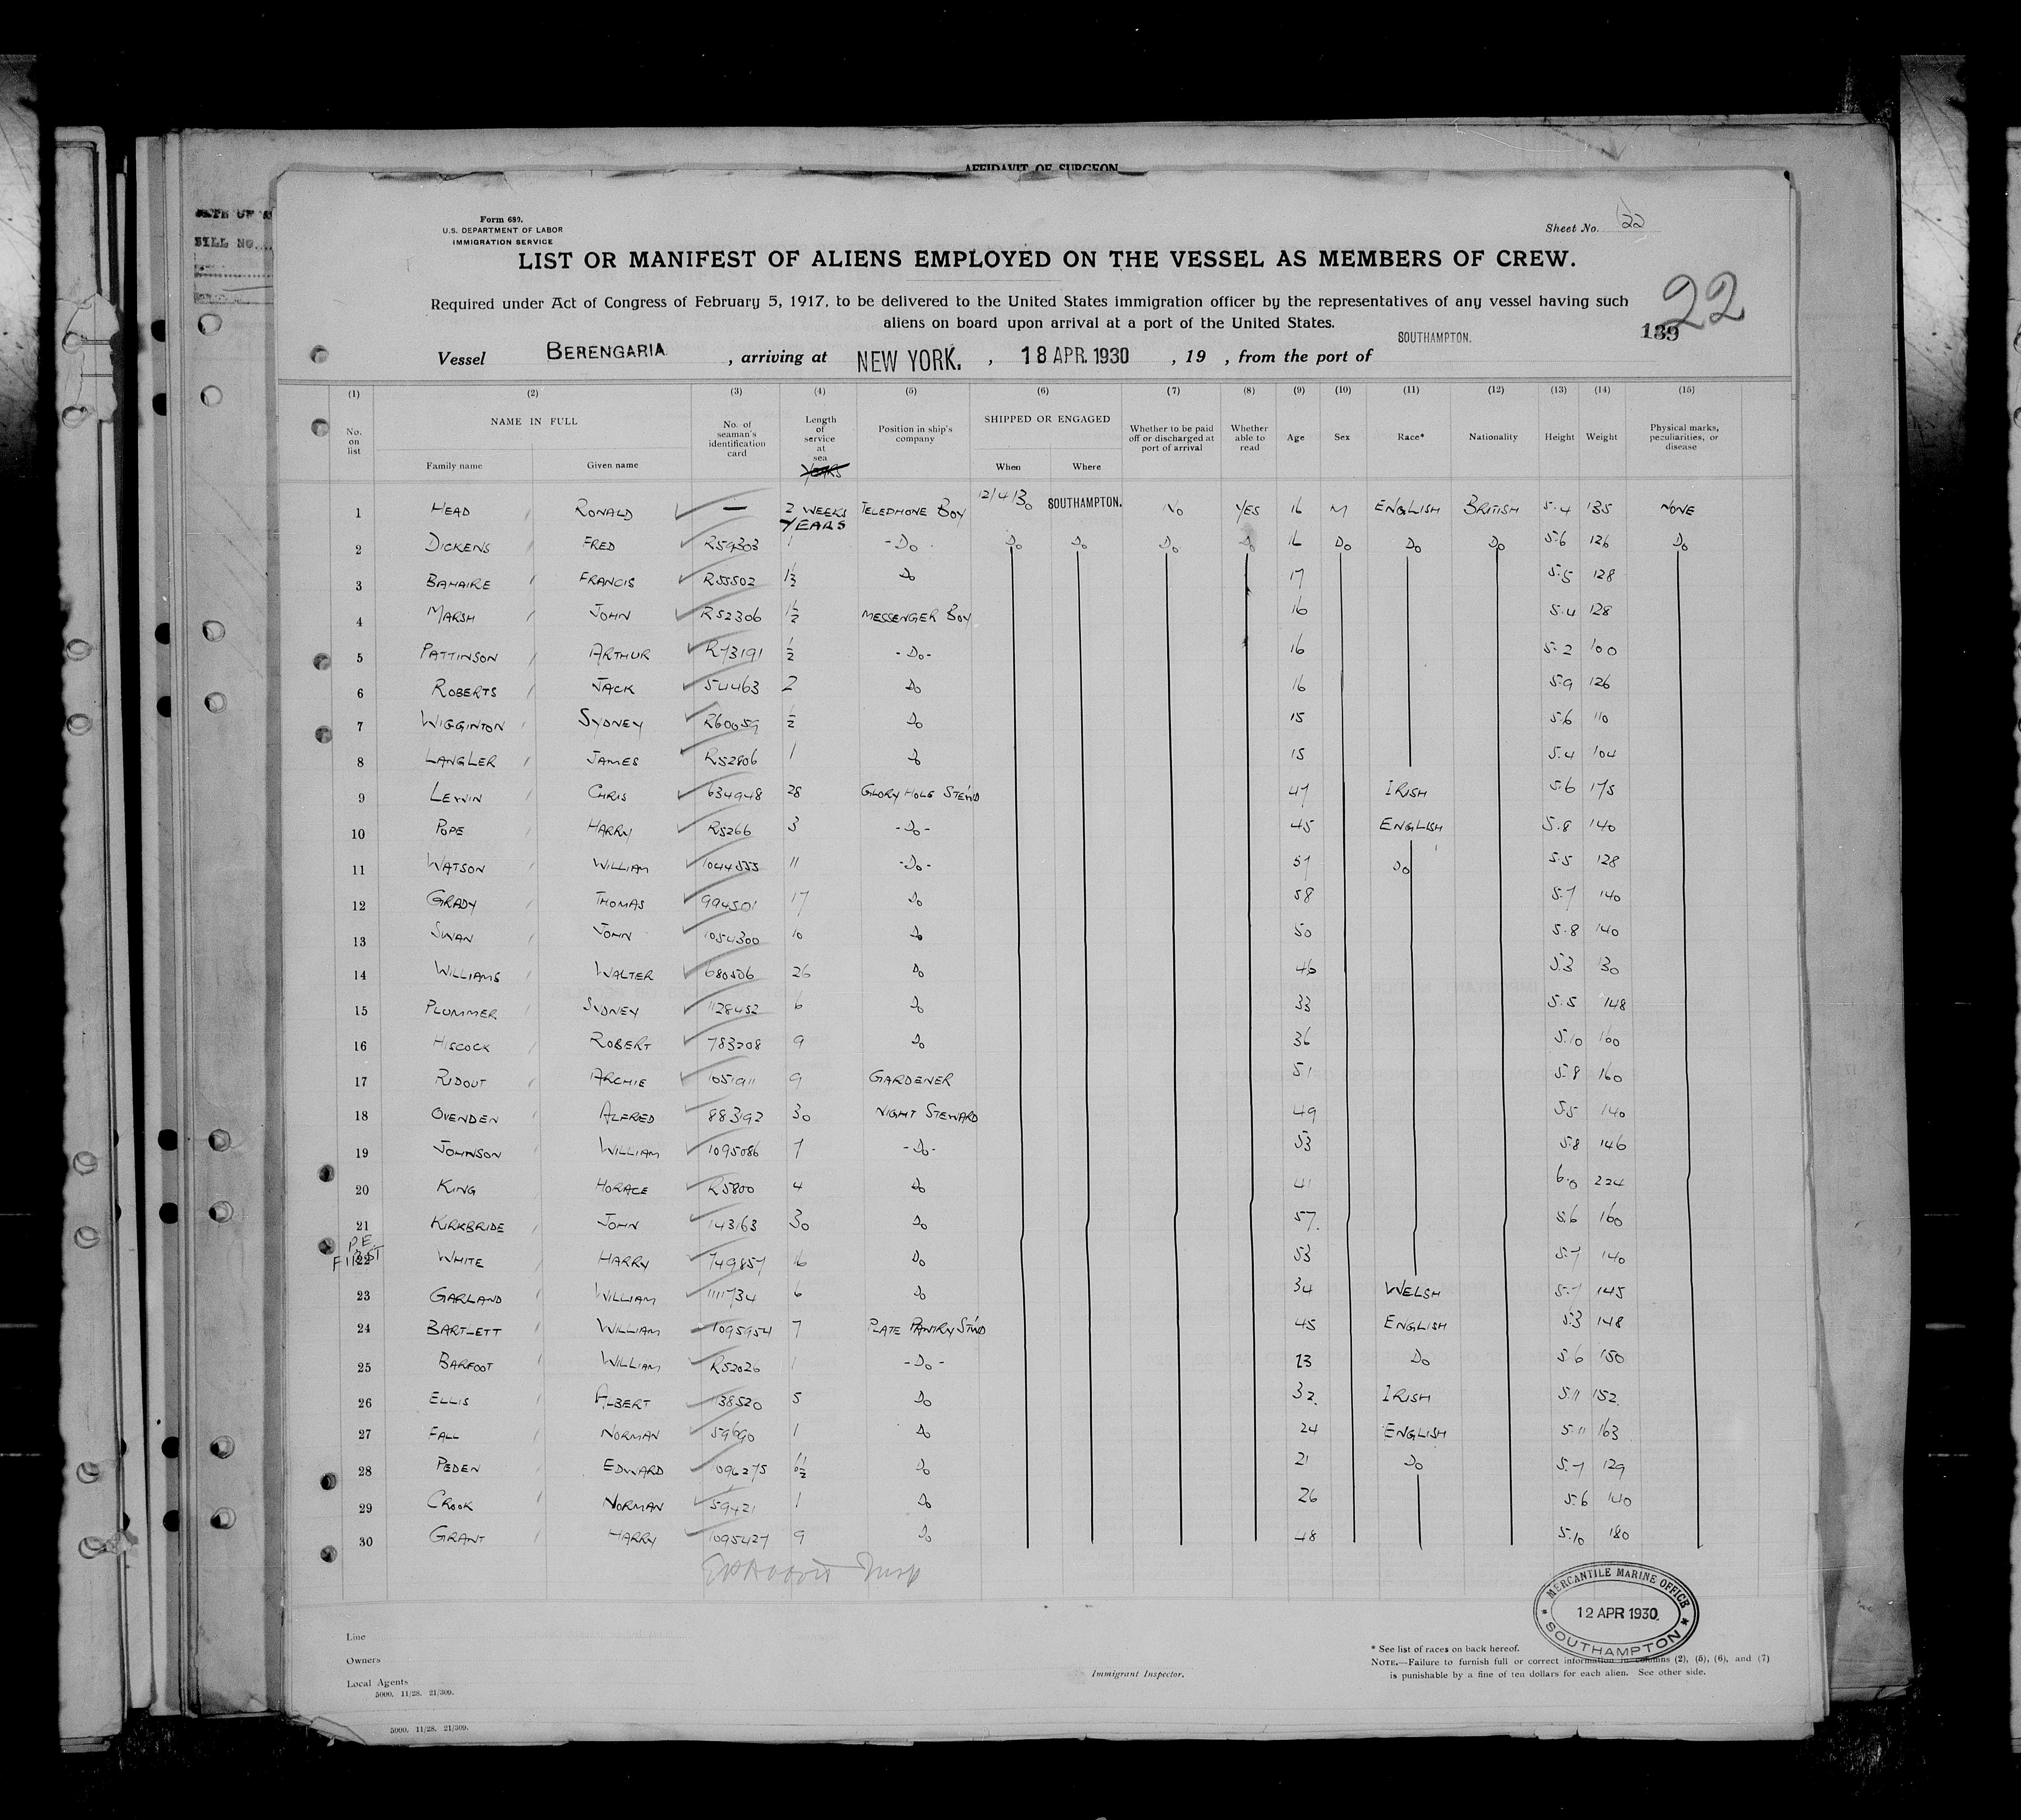 AFFIDAVIT OF SURGEON
Form 689.
U.S. DEPARTMENT OF LABOR
IMMIGRATION SERVICE
Sheet No. 22
LIST OR MANIFEST OF ALIENS EMPLOYED ON THE VESSEL AS MEMBERS OF CREW.
22
Required under Act of Congress of February 5, 1917, to be delivered to the United States immigration officer by the representatives of any vessel having such
aliens on board upon arrival at a port of the United States.
139
Vessel BERENGARIA, arriving at NEW YORK., 18 APR. 1930, 19 , from the port of SOUTHAMPTON.
(1) (2) (3) (4) (5) (6) (7) (8) (9) (10) (11) (12) (13) (14) (15)
No. on list NAME IN FULL Family name Given name No. of seaman's identification card Length of service at sea YEARS Position in ship's company SHIPPED OR ENGAGED When Where Whether to be paid off or discharged at port of arrival Whether able to read Age Sex Race* Nationality Height Weight Physical marks, peculiarities, or disease
1 HEAD RONALD — 2 WEEKS TELEPHONE BOY 12/4/30 SOUTHAMPTON. NO YES 16 M ENGLISH BRITISH 5.4 135 NONE
YEARS
2 DICKENS FRED R59303 1 -Do- Do Do Do Do 16 Do Do Do 5.6 126 Do
3 BAHAIRE FRANCIS R55502 1½ Do 17 5.5 128
4 MARSH JOHN R52306 1½ MESSENGER BOY 16 5.4 128
5 PATTINSON ARTHUR R73191 ½ -Do- 16 5.2 100
6 ROBERTS JACK 54463 2 Do 16 5.9 126
7 WIGGINTON SYDNEY R60059 ½ Do 15 5.6 110
8 LANGLER JAMES R52806 1 Do 15 5.4 104
9 LEWIN CHRIS 634948 28 GLORY HOLE STEWD 47 IRISH 5.6 175
10 POPE HARRY R5266 3 -Do- 45 ENGLISH 5.8 140
11 WATSON WILLIAM 1044555 11 -Do- 57 Do 5.5 128
12 GRADY THOMAS 994501 17 Do 58 5.7 140
13 SWAN JOHN 1054300 10 Do 50 5.8 140
14 WILLIAMS WALTER 680506 26 Do 46 5.3 130
15 PLUMMER SYDNEY 1128452 6 Do 33 5.5 148
16 HISCOCK ROBERT 783208 9 Do 36 5.10 160
17 RIDOUT ARCHIE 1051911 9 GARDENER 51 5.8 160
18 OVENDEN ALFRED 883192 30 NIGHT STEWARD 49 5.5 140
19 JOHNSON WILLIAM 1095086 7 -Do- 53 5.8 146
20 KING HORACE R5800 4 Do 41 6.0 224
21 KIRKBRIDE JOHN 143163 30 Do 57. 5.6 160
P.E.
FIRST
22 WHITE HARRY 749857 16 Do 53 5.7 140
23 GARLAND WILLIAM 1111734 6 Do 34 WELSH 5.7 145
24 BARTLETT WILLIAM 1095954 7 PLATE PANTRY STWD 45 ENGLISH 5.3 148
25 BARFOOT WILLIAM R52026 1 -Do- 23 Do 5.6 150
26 ELLIS ALBERT 1138520 5 Do 32. IRISH 5.11 152
27 FALL NORMAN 59690 1 Do 24 ENGLISH 5.11 163
28 PEDEN EDWARD 1096275 6½ Do 21 Do 5.7 129
29 CROOK NORMAN 59421 1 Do 26 5.6 140
30 GRANT HARRY 1095427 9 Do 48 5.10 180
MERCANTILE MARINE OFFICE
12 APR 1930
SOUTHAMPTON
Line
Owners
Local Agents
5000. 11/28. 21/309.
Immigrant Inspector.
* See list of races on back hereof.
NOTE.—Failure to furnish full or correct information in columns (2), (5), (6), and (7)
is punishable by a fine of ten dollars for each alien. See other side.
5000. 11/28. 21/309.